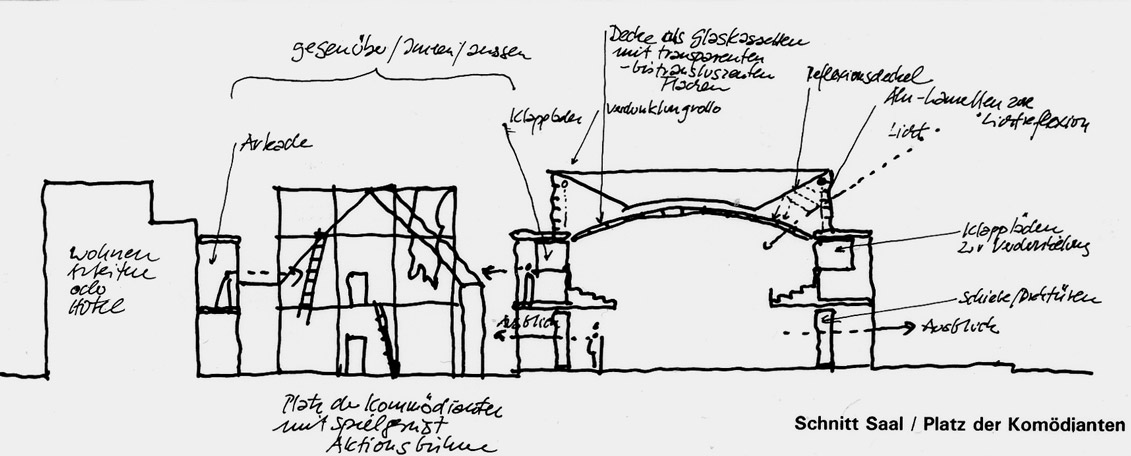 gegenüber/innen/aussen
Decke als Glaskassetten
mit transparenten
-bis transluzenten
Flächen
Reflexionsdeckel
Alu-Lamellen zur
Lichtreflexion
Licht
Klappladen
Verdunklungsrollo
Arkade
wohnen
Arbeiten
oder
Hotel
Klappläden
zur Verdunkelung
Schiebe/Drehtüren
Ausblick
Ausblick
Platz der Kommödianten
mit Spielgerüst
Aktionsbühne
Schnitt Saal / Platz der Komödianten